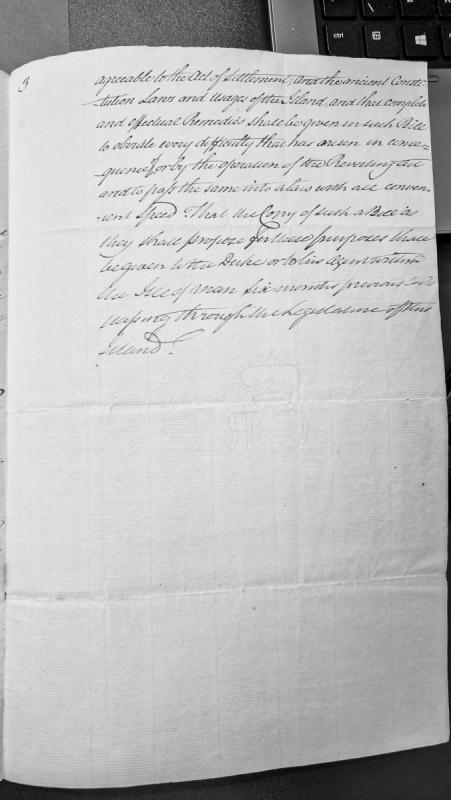 3
agreeable to the Act of Settlement, and the ancient Consti-
-tution Laws and usages of the Island, and that complete
and effectual Remedies shall be given in such Bill
to obviate every difficulty that has arisen in conse-
-quence of, or by the operation of the Revesting Act
and to pass the same into a Law with all conven-
-ient Speed That the Copy of such a Bill as
they shall propose for these purposes shall
be given to the Duke or to his Agent within
the Isle of Man Six months previous to its
passing through the Legislature of this
Island.
ctrl
fn
alt
GR